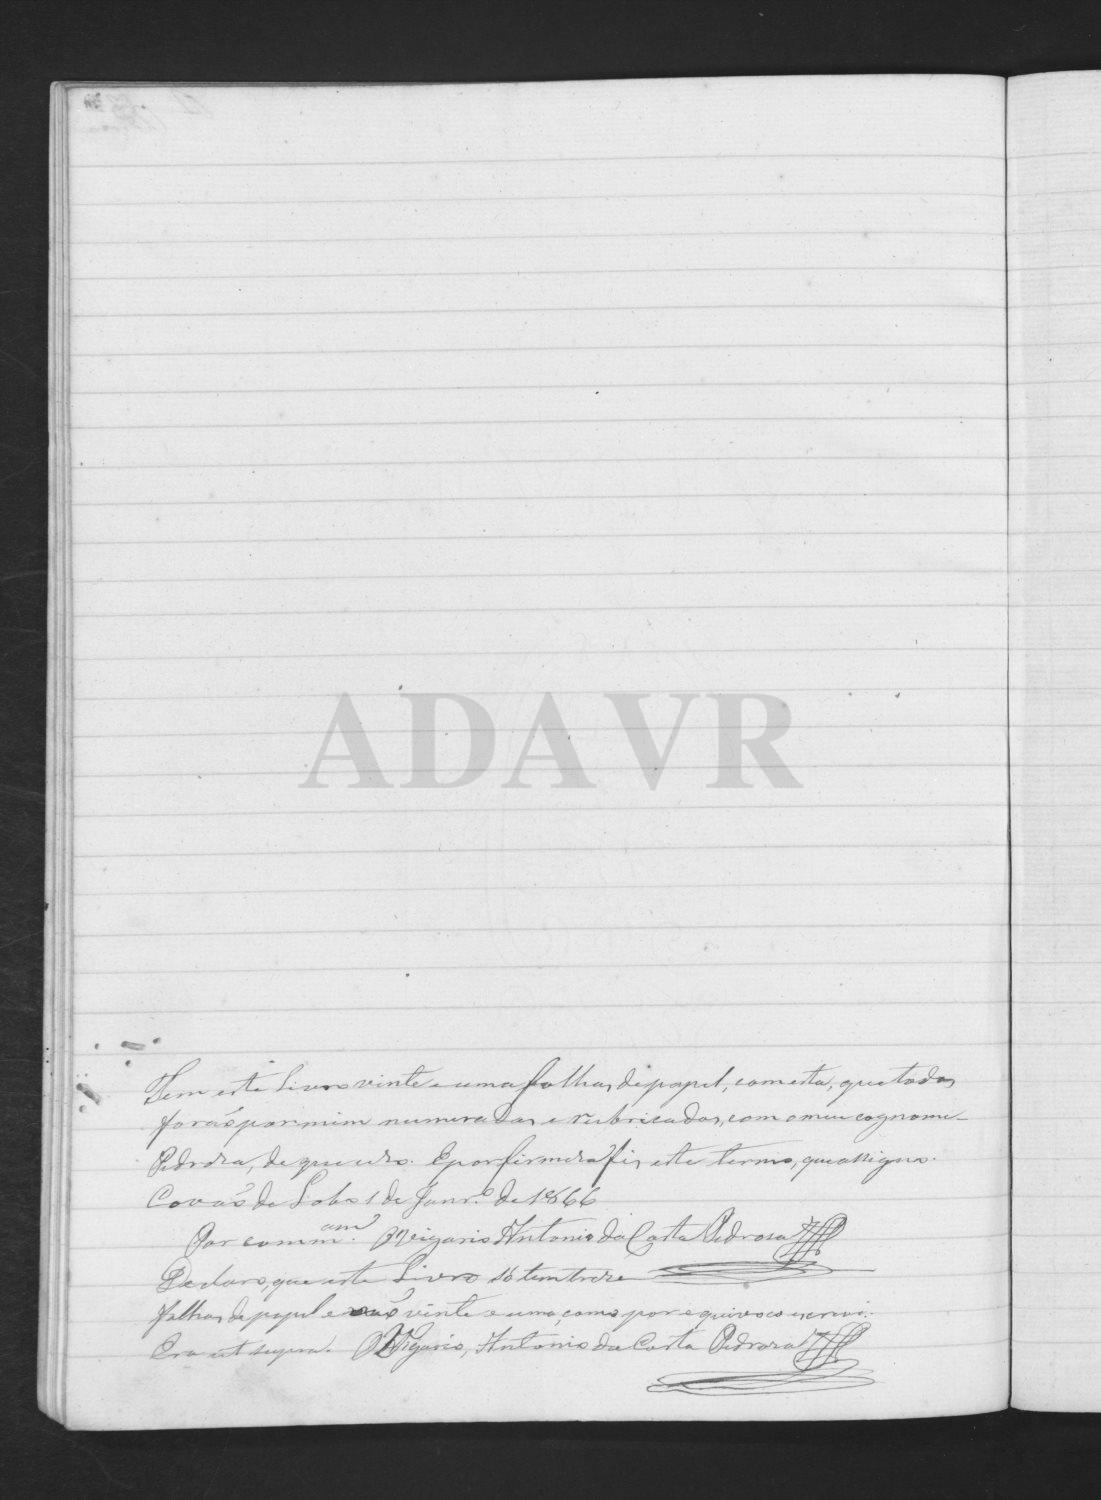 ADAVR
Tem este Livro vinte e uma folhas de papel, com esta, que todas
foraõ por mim numeradas e rubricadas, com o meu cognome -
Pedroza, de que uso. E por firmeza fiz este termo, que assigno.
Covaõ do Lobo 1 de Janr.º de 1866
Por comm.am O Vigario Antonio da Costa Pedrosa
Declaro, que este Livro só tem treze
folhas de papel e naõ vinte e uma, como por equivoco escrevi.
Era ut supra. O Vigario, Antonio da Costa Pedroza